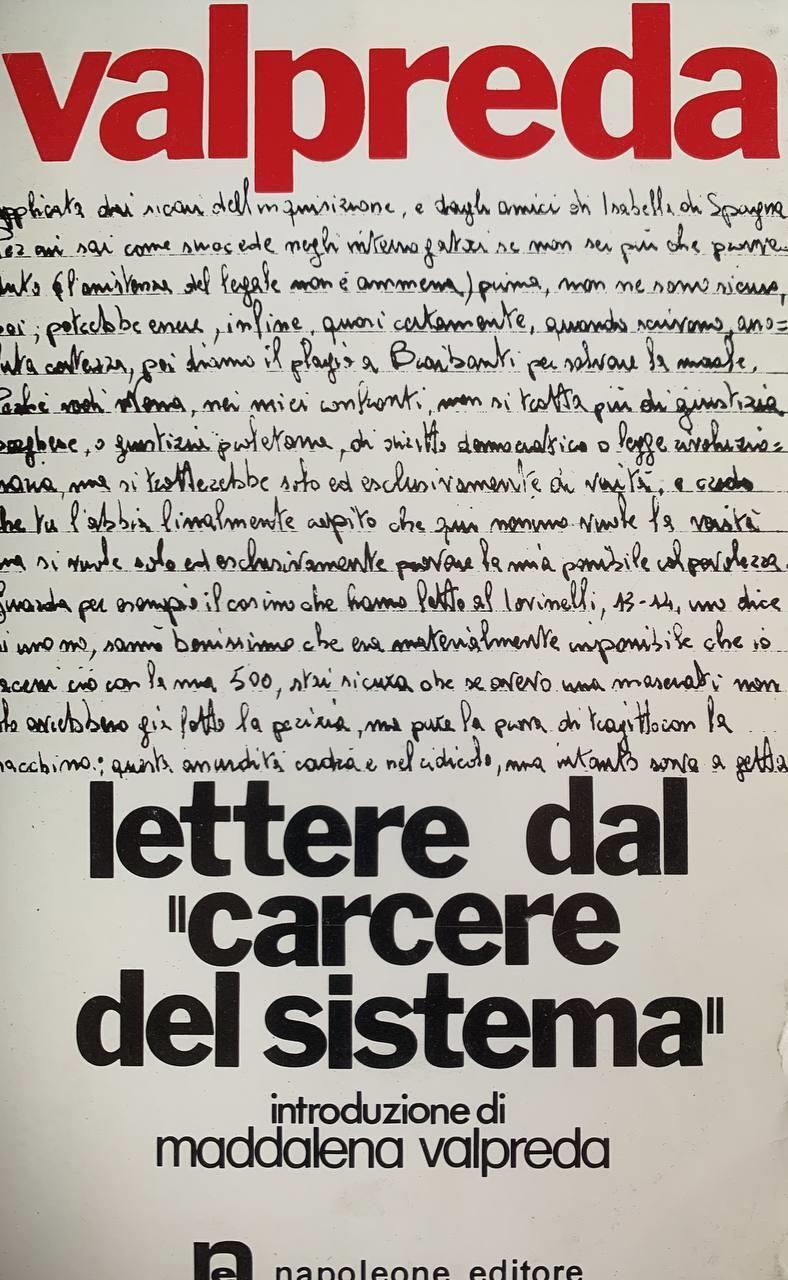 valpreda
applicata dai sicari dell'inquisizione, e dagli amici di Isabella di Spagna
sai come succede negli interrogatori se non sei più che
(l'assistenza del legale non è ammessa) prima, non ne sono sicuro,
poi; potrebbe essere, infine, quasi certamente, quando scrivono, asso=
luta certezza, poi diamo il plagio a Braibanti per salvare la morale.
vedi nei miei confronti, non si tratta più di giustizia
borghese, o giustizia proletaria, di diritto democratico o legge rivoluzio=
naria, ma si tratterebbe solo ed esclusivamente di verità, e credo
che tu l'abbia finalmente capito che qui nessuno vuole la verità
ma si vuole solo ed esclusivamente provare la mia possibile colpevolezza.
Guarda per esempio il casino che hanno fatto al Iovinelli, 13-14, uno dice
sì uno no, sanno benissimo che era materialmente impossibile che io
facessi ciò con la mia 500, stai sicura che se avevo una maserati non
avrebbero già fatto la perizia, ma pure la prova di tragitto con la
macchina; questa assurdità cadrà e nel ridicolo, ma intanto serve a getta
lettere dal
"carcere
del sistema"
introduzione di
maddalena valpreda
ne napoleone editore